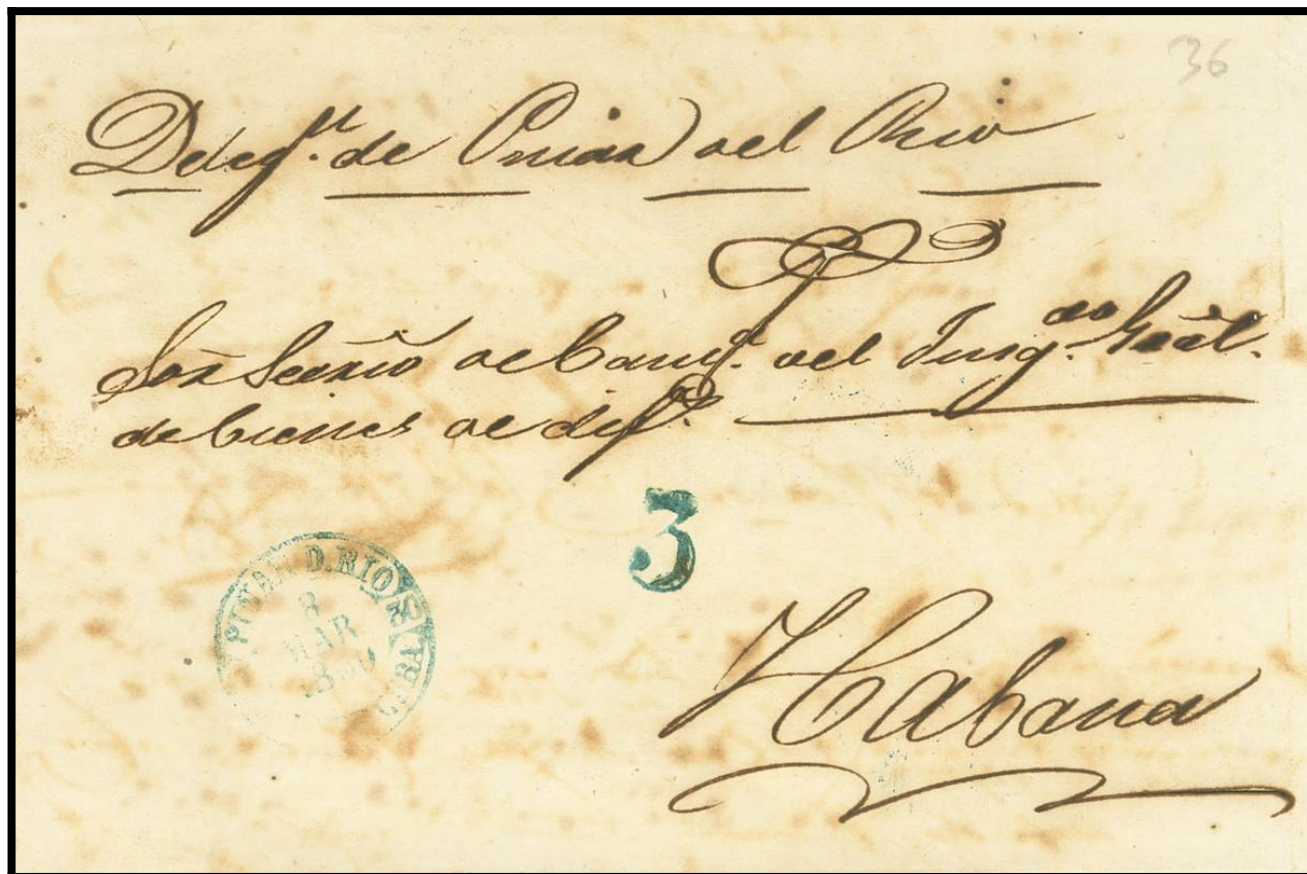 36
Deleg.n de Pinar del Rio
Sor Secrio de Cam.ª del Juzg.do Gral.
de bienes de dif.s
3
PINAR D. RIO
8
MAR
Habana